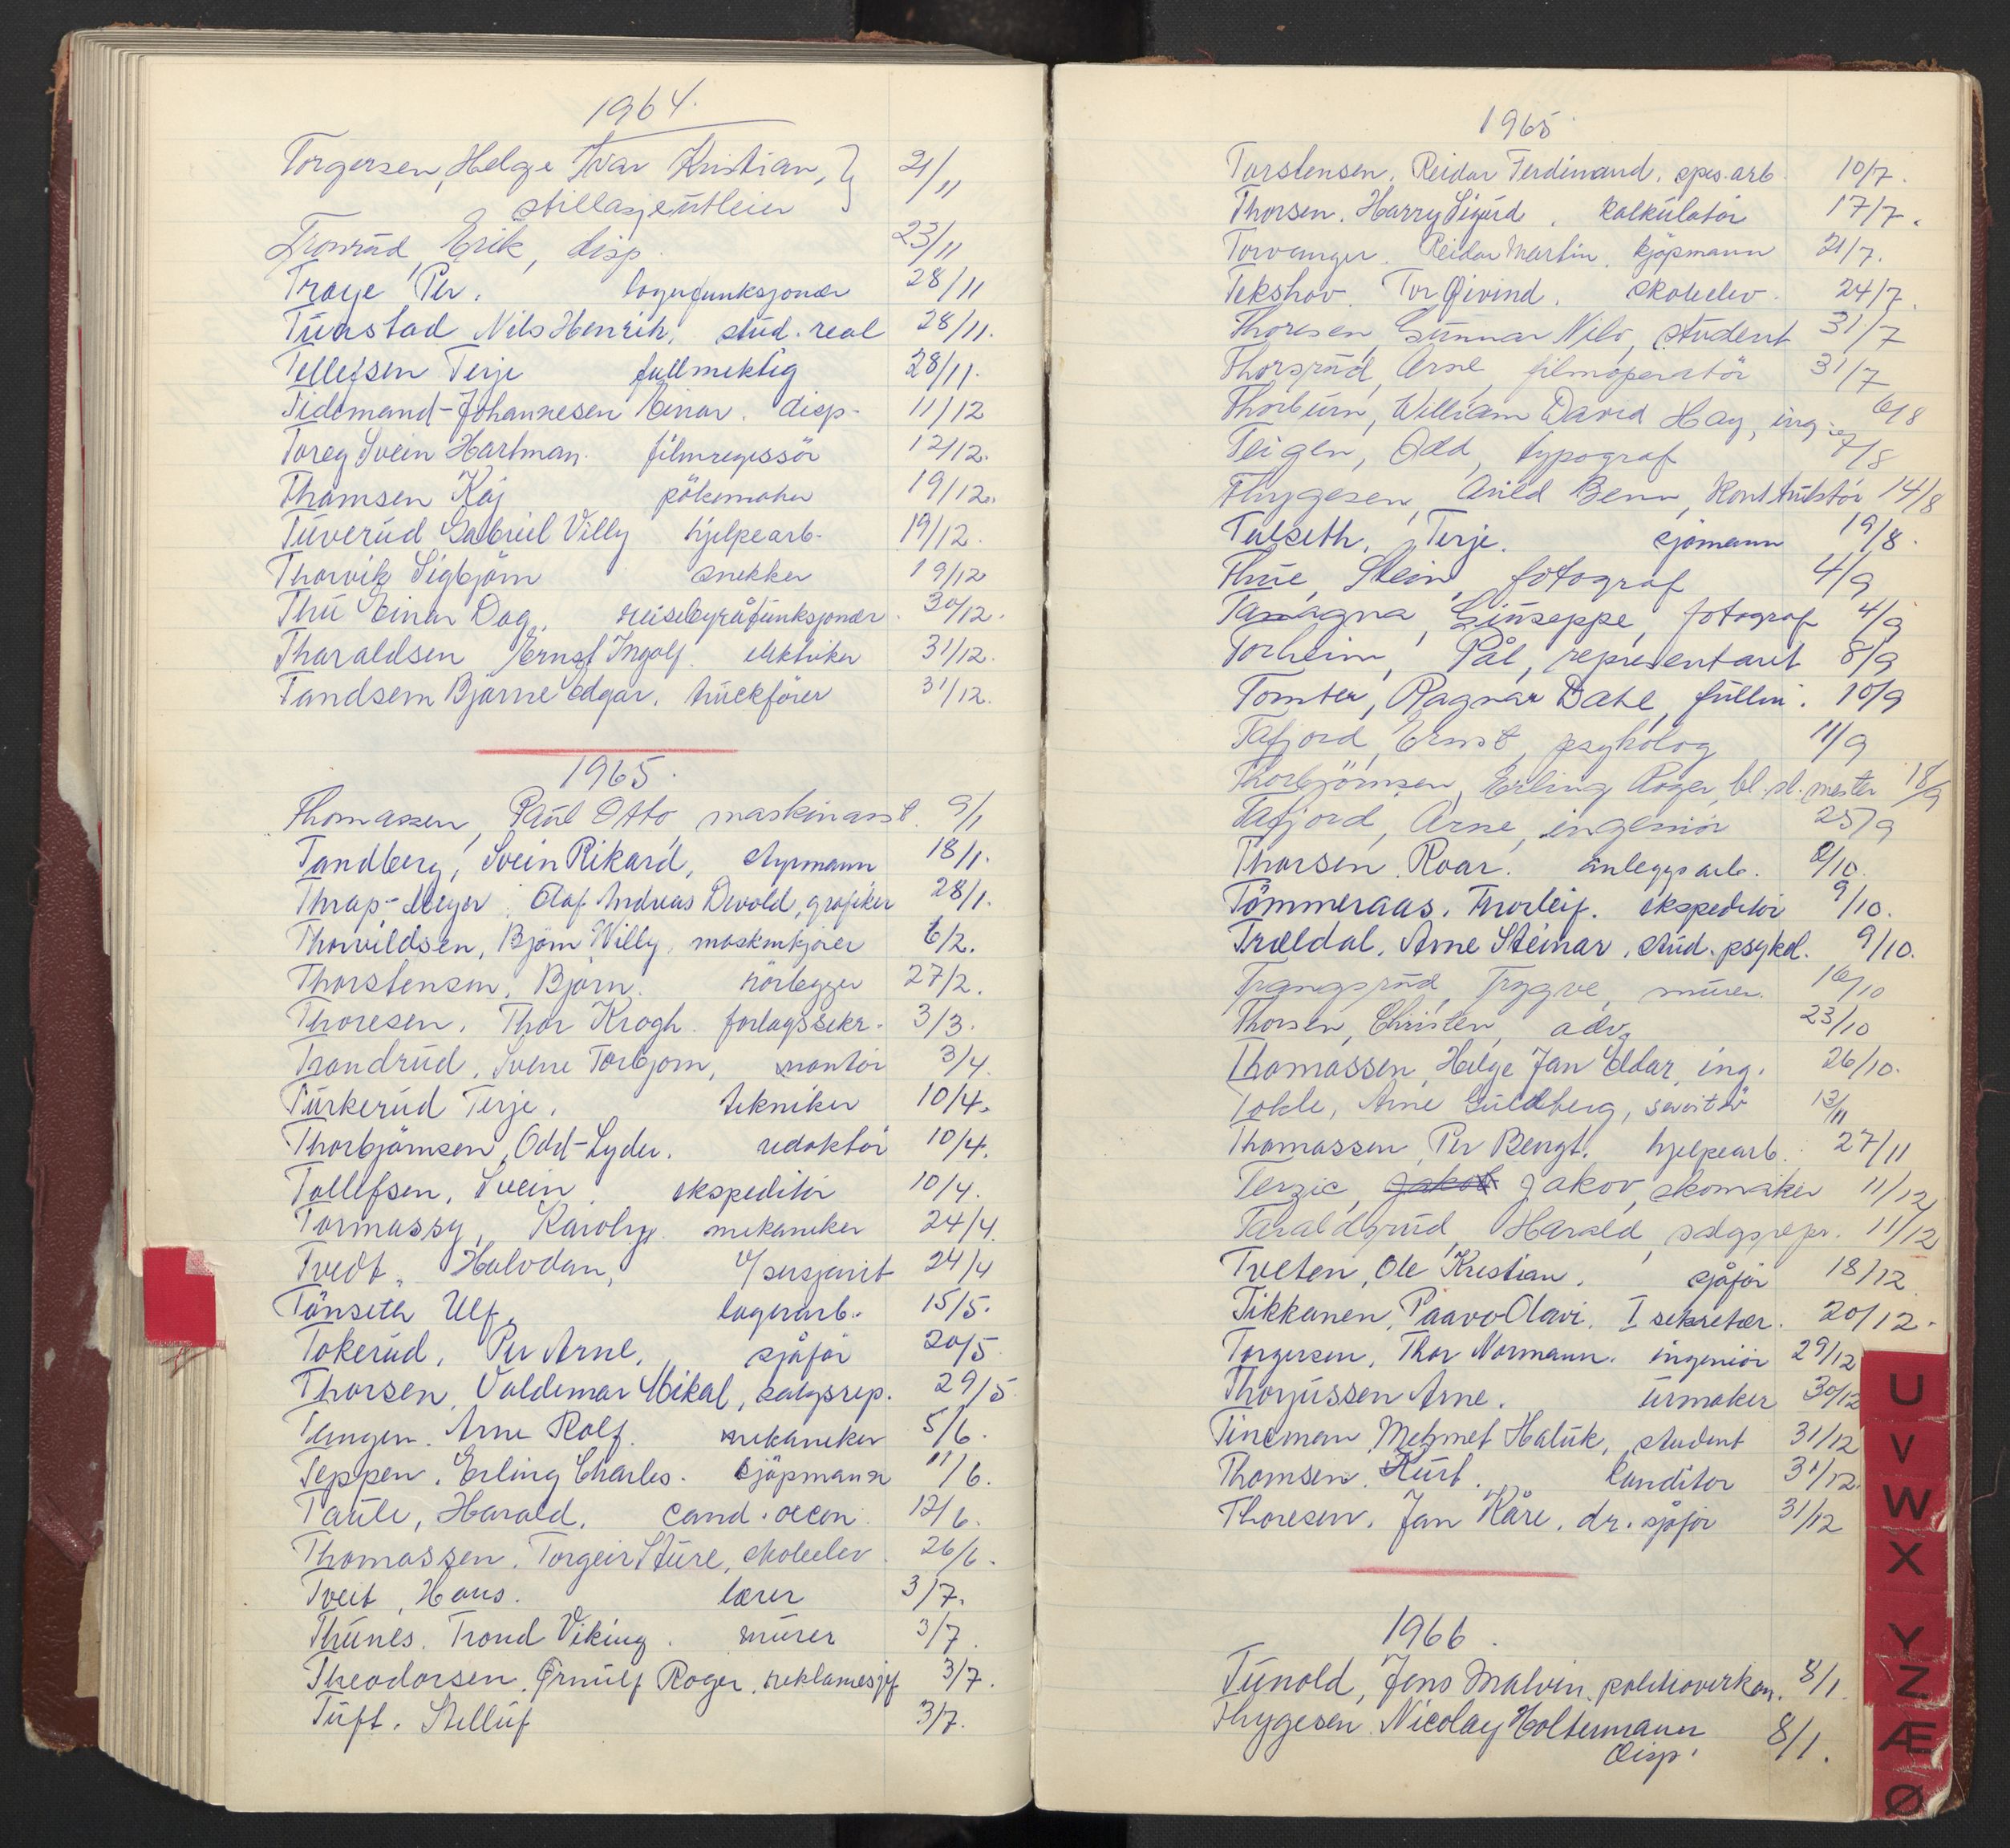 1964.
Torgersen, Helge Ivar Kristian, } 21/11
stillasjeutleier
Tronrud, Erik, disp. 23/11
Traye Per. lagerfunksjonær 28/11
Tunstad Nils Henrik, stud. real 28/11.
Tellefsen Terje fullmektig 28/11.
Tidemand-Johannesen Einar. disp. 11/12
Toreg Svein Hartman. filmregissör 12/12.
Thomsen Kaj 19/12.
Tuverud Gabriel Villy hjelpearb. 19/12.
Thorvik Sigbjörn snekker 19/12
Thu Einar Dag. reisebyråfunksjonær. 30/12.
Tharaldsen Ernst Ingolf. elektriker 31/12.
Tandsem Bjarne Edgar. truckförer 31/12.
1965.
Thomassen, Paul Otto, maskinasst. 9/1
Tandberg, Svein Rikard, styrmann 18/1.
Thrap-Meyer, Olaf Andreas Devold, grafiker 28/1.
Thorvildsen, Björn Willy, maskinkjörer 6/2.
Thorstensen, Björn. rörlegger 27/2.
Thoresen, Thor Krogh. forlagssekr. 3/3.
Trondrud, Sverre Torbjorn, montör 3/4.
Turkerud Terje. tekniker 10/4.
Thorbjörnsen, Odd-Lyder. redaktör 10/4.
Tollefsen, Svein. ekspeditör 10/4.
Tormassy, Karoly. mekaniker 24/4.
Tvedt, Halvdan, v/sersjant 24/4
Tönseth Ulf, lagerarb. 15/5.
Tokerud, Per Arne, sjåför 20/5
Thorsen, Valdemar Mikal, salgsrep. 29/5
Tangen. Arne Rolf. mekaniker 5/6.
Teppen. Erling Charles. kjöpmann 11/6.
Taule, Harald. cand. oecon. 12/6.
Thomassen. Torgeir Sture, skoleelev. 26/6.
Tveit, Hans. lærer 3/7.
Thunes. Trond Viking. murer 3/7.
Theodorsen. Örnulf Roger, reklamesjef 3/7.
Tuft. Stelluf 3/7.
1965
Torstensen. Reidar Ferdinand. spes.arb. 10/7.
Thorsen. Harry Sigurd. kalkulatör 17/7.
Torvanger. Reidar Martin. kjöpmann 21/7.
Tekshov Tor Öivind. skoleelev. 24/7.
Thoresen, Gunnar Nils, student 31/7
Thorsrud, Arne, filmoperatör 31/7
Thorburn, William David Hay, ing. 6/8
Teigen, Odd, typograf 7/8
Thygesen, Arild Benn, konstruktör 14/8
Talseth, Terje. sjömann 19/8.
Thue, Stein, fotograf 4/9
Tamagna, Giuseppe, fotograf 4/9
Torheim, Pål, representant 8/9
Tomter, Ragnar Dahl, fullm. 10/9
Tafjord, Ernst, psykolog 11/9
Thorbjörnsen, Erling Roger, bl. sl. mester 18/9
Tafjord, Arne, ingeniör 25/9
Thorsen Roar. anleggsarb. 8/10.
Tömmeraas. Thorleif. ekspeditör 9/10.
Trældal, Arne Steinar, stud. psykol. 9/10.
Trangsrud, Trygve, murer. 16/10
Thorsen, Christen, adv. 23/10
Thomassen, Helge Jan Eldar, ing. 26/10.
Tokle, Arne Guldberg, servitör 13/11
Thomassen, Per Bengt. hjelpearb. 27/11
Terzic, Jakob Jakov, skomaker 11/12
Taraldsrud, Harald, salgsrepr. 11/12
Tveten, Ole Kristian. sjåför 18/12
Tikkanen, Paavo Olavi. I sekretær. 20/12.
Torgersen, Thor Normann. ingeniör 29/12
Thorjussen Arne. urmaker 30/12
Tineman, Mehmet Haluk, student 31/12
Thomsen, Kurt. konditor 31/12.
Thoresen. Jan Kåre. dr. sjåför 31/12
1966.
Tunold, Jens Malvin. politioverkon. 8/1.
Thygesen Nicolay Holtermann 8/1.
Disp.
U
V
W
X
Y
Z
Æ
Ø